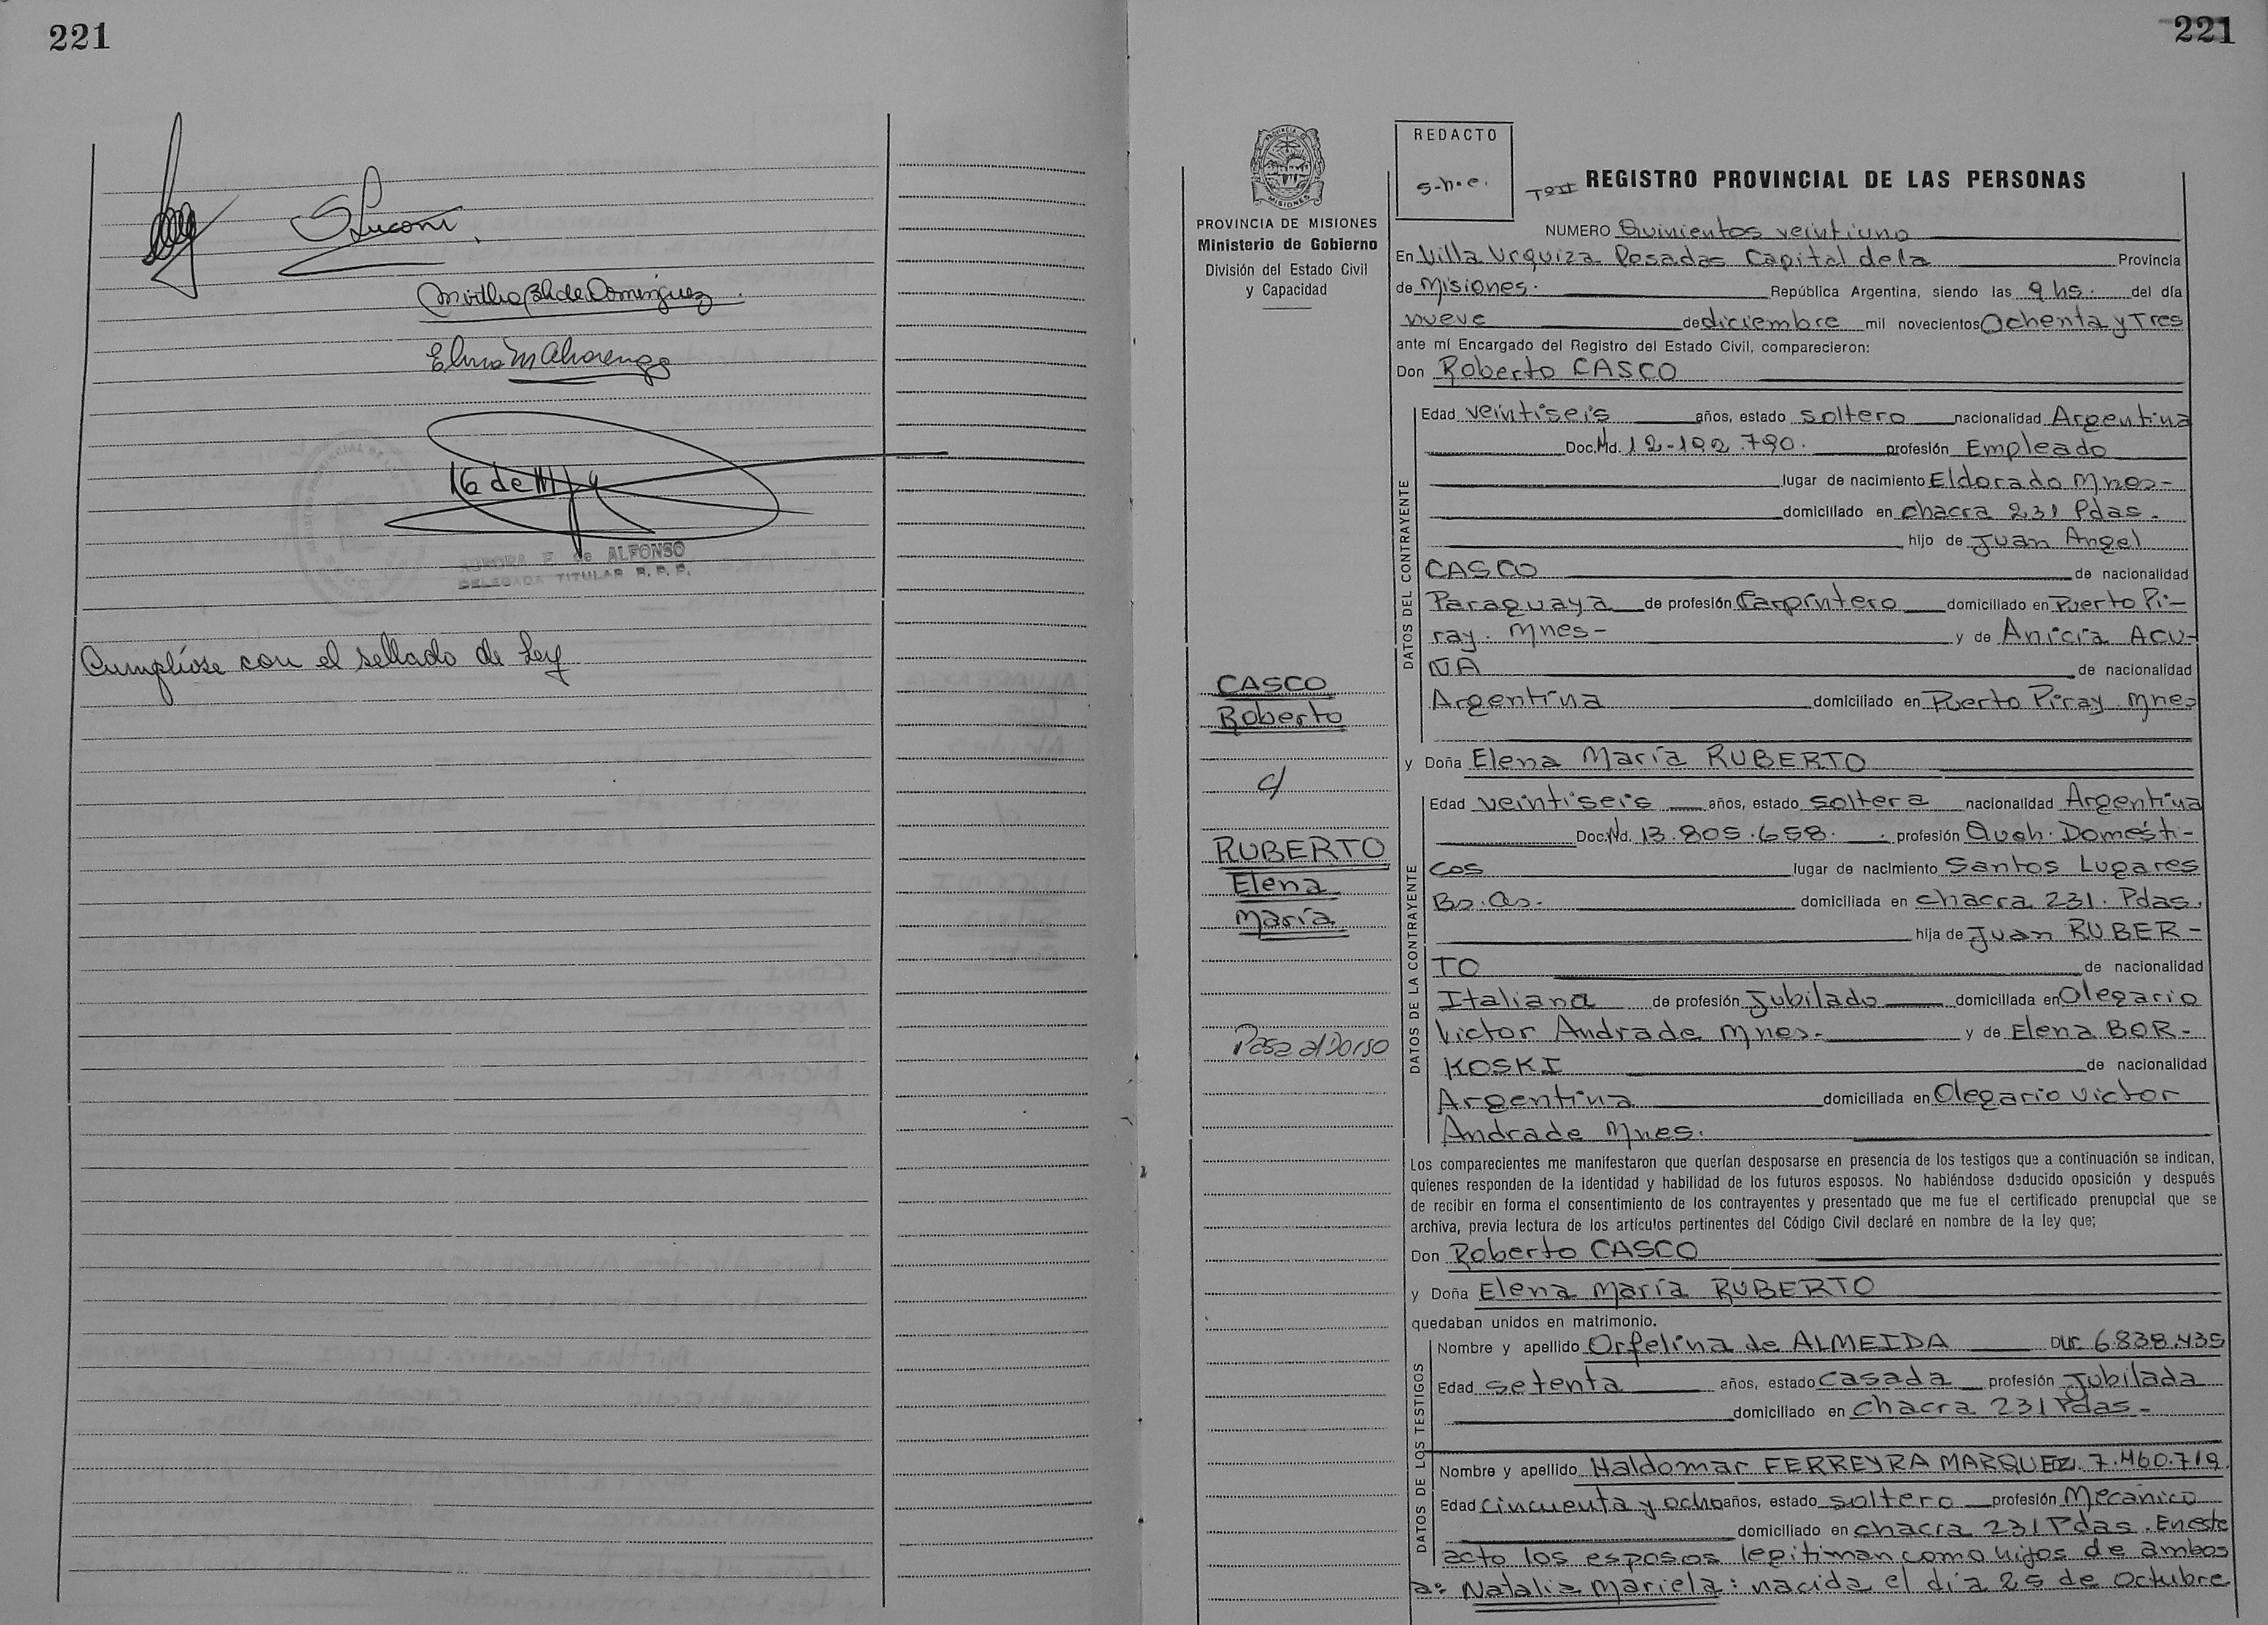 221
S Luconi
Mirtha B L de Dominguez
Elvira M Alvarenga
16 de
AURORA E. de ALFONSO
DELEGADA TITULAR R. P. P.
Cumplióse con el sellado de Ley
221
PROVINCIA DE MISIONES
Ministerio de Gobierno
División del Estado Civil
y Capacidad
CASCO
Roberto
c/
RUBERTO
Elena
María
Pasa al Dorso
REDACTO
s-h-e.
REGISTRO PROVINCIAL DE LAS PERSONAS
NUMERO Quinientos veintiuno
En Villa Urquiza Posadas Capital de la Provincia
de Misiones. República Argentina, siendo las 9 hs. del día
nueve de diciembre mil novecientos Ochenta y Tres
ante mí Encargado del Registro del Estado Civil, comparecieron:
Don Roberto CASCO
DATOS DEL CONTRAYENTE
Edad veintiseis años, estado soltero nacionalidad Argentina
Doc.Nd. 12-192.790. profesión Empleado
lugar de nacimiento Eldorado Mnes-
domiciliado en chacra 231 Pdas.
hijo de Juan Angel
CASCO de nacionalidad
Paraguaya de profesión Carpintero domiciliado en Puerto Pi-
ray. Mnes- y de Anicia ACU-
ÑA de nacionalidad
Argentina domiciliado en Puerto Piray. Mnes
y Doña Elena María RUBERTO
DATOS DE LA CONTRAYENTE
Edad veintiseis años, estado soltera nacionalidad Argentina
Doc.Nd. 13.805.658. profesión Queh. Domésti-
cos lugar de nacimiento Santos Lugares
Bs. As. domiciliada en chacra 231. Pdas.
hija de Juan RUBER-
TO de nacionalidad
Italiana de profesión Jubilado domiciliada en Olegario
Victor Andrade Mnes. y de Elena BOR-
KOSKI de nacionalidad
Argentina domiciliada en Olegario Victor
Andrade Mnes.
Los comparecientes me manifestaron que querían desposarse en presencia de los testigos que a continuación se indican,
quienes responden de la identidad y habilidad de los futuros esposos. No habiéndose deducido oposición y después
de recibir en forma el consentimiento de los contrayentes y presentado que me fue el certificado prenupcial que se
archiva, previa lectura de los artículos pertinentes del Código Civil declaré en nombre de la ley que;
Don Roberto CASCO
y Doña Elena María RUBERTO
quedaban unidos en matrimonio.
DATOS DE LOS TESTIGOS
Nombre y apellido Orfelina de ALMEIDA 6.838.435
Edad setenta años, estado casada profesión Jubilada
domiciliado en chacra 231 Pdas-
Nombre y apellido Haldomar FERREYRA MARQUEZ. 7.460.719
Edad cincuenta y ocho años, estado soltero profesión Mecánico
domiciliado en chacra 231 Pdas. En este
acto los esposos legitiman como hijos de ambos
a: Natalia Mariela: nacida el día 25 de Octubre